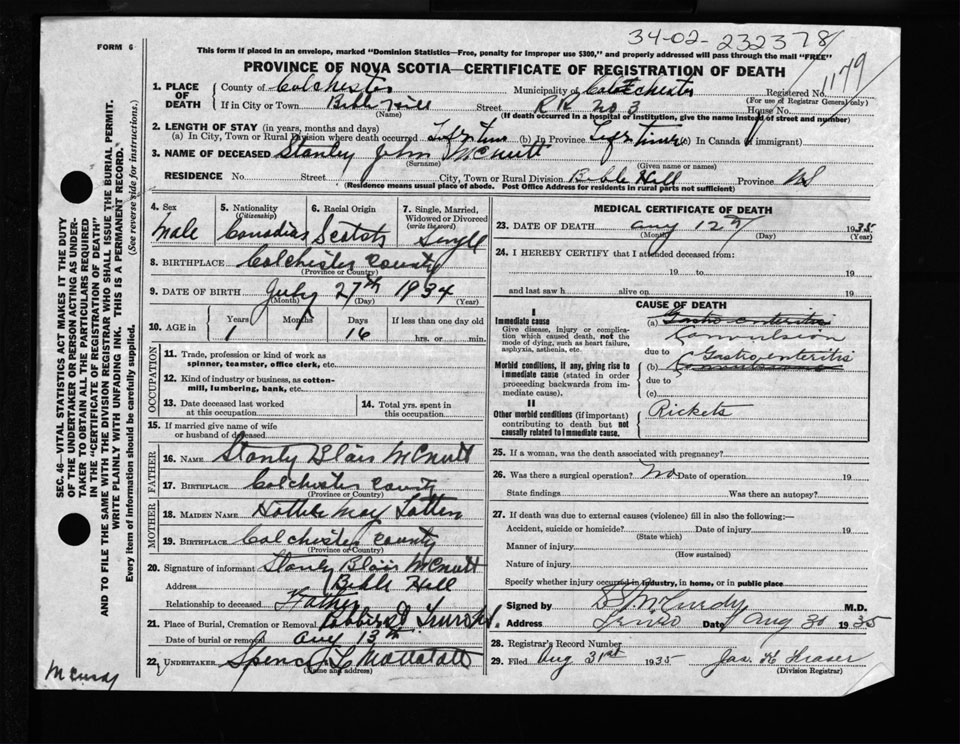 34-02-232378
FORM 6
This form if placed in an envelope, marked "Dominion Statistics—Free, penalty for improper use $300," and properly addressed will pass through the mail "FREE"
1179
PROVINCE OF NOVA SCOTIA—CERTIFICATE OF REGISTRATION OF DEATH
1. PLACE OF DEATH County of Colchester Municipality of Colchester Registered No.
(For use of Registrar General only)
If in City or Town Bible Hill Street R R no 3 House No.
(Name) (If death occurred in a hospital or institution, give the name instead of street and number)
2. LENGTH OF STAY (in years, months and days)
(a) In City, Town or Rural Division where death occurred Life time (b) In Province Life time (c) In Canada (if immigrant)
3. NAME OF DECEASED Stanley John McNutt
(Surname) (Given name or names)
RESIDENCE No. Street City, Town or Rural Division Bible Hill Province NS
(Residence means usual place of abode. Post Office Address for residents in rural parts not sufficient)
4. Sex
male
5. Nationality (Citizenship)
Canadian
6. Racial Origin
Scotch
7. Single, Married, Widowed or Divorced (write the word)
Single
8. BIRTHPLACE Colchester County
(Province or Country)
9. DATE OF BIRTH July 27th 1934
(Month) (Day) (Year)
10. AGE in Years Months Days If less than one day old
1 16 hrs. or min.
OCCUPATION
11. Trade, profession or kind of work as spinner, teamster, office clerk, etc.
12. Kind of industry or business, as cotton-mill, lumbering, bank, etc.
13. Date deceased last worked at this occupation
14. Total yrs. spent in this occupation
15. If married give name of wife or husband of deceased
FATHER
16. NAME Stanley Blair McNutt
17. BIRTHPLACE Colchester County
(Province or Country)
MOTHER
18. MAIDEN NAME May
19. BIRTHPLACE Colchester County
(Province or Country)
20. Signature of informant Stanley Blair McNutt
Address Bible Hill
Relationship to deceased Father
21. Place of Burial, Cremation or Removal Truro NS.
Date of burial or removal Aug 13th
22. UNDERTAKER Spencer
(Name and address)
MEDICAL CERTIFICATE OF DEATH
23. DATE OF DEATH Aug 12th 1935
(Month) (Day) (Year)
24. I HEREBY CERTIFY that I attended deceased from:
19 to 19
and last saw h alive on 19
CAUSE OF DEATH
I
Immediate cause
Give disease, injury or complication which caused death, not the mode of dying, such as heart failure, asphyxia, asthenia, etc.
(a) Gastro enteritis
Konvulsion
due to Gastro enteritis
Morbid conditions, if any, giving rise to immediate cause (stated in order proceeding backwards from immediate cause).
(b)
due to
(c)
II
Other morbid conditions (if important) contributing to death but not causally related to immediate cause.
Rickets
25. If a woman, was the death associated with pregnancy?
26. Was there a surgical operation? No Date of operation 19
State findings Was there an autopsy?
27. If death was due to external causes (violence) fill in also the following:—
Accident, suicide or homicide? Date of injury 19
(State which)
Manner of injury
(How sustained)
Nature of injury
Specify whether injury occurred in industry, in home, or in public place
Signed by McCurdy M.D.
Address Truro Date Aug 30 1935
28. Registrar's Record Number
29. Filed Aug 31st 1935 Jas. H Fraser
(Division Registrar)
SEC. 46—VITAL STATISTICS ACT MAKES IT THE DUTY OF THE UNDERTAKER OR PERSON ACTING AS UNDERTAKER TO OBTAIN ALL THE PARTICULARS REQUIRED IN THE "CERTIFICATE OF REGISTRATION OF DEATH"
AND TO FILE THE SAME WITH THE DIVISION REGISTRAR WHO SHALL ISSUE THE BURIAL PERMIT.
WRITE PLAINLY WITH UNFADING INK. THIS IS A PERMANENT RECORD.
Every item of information should be carefully supplied. (See reverse side for instructions.)
McCurdy